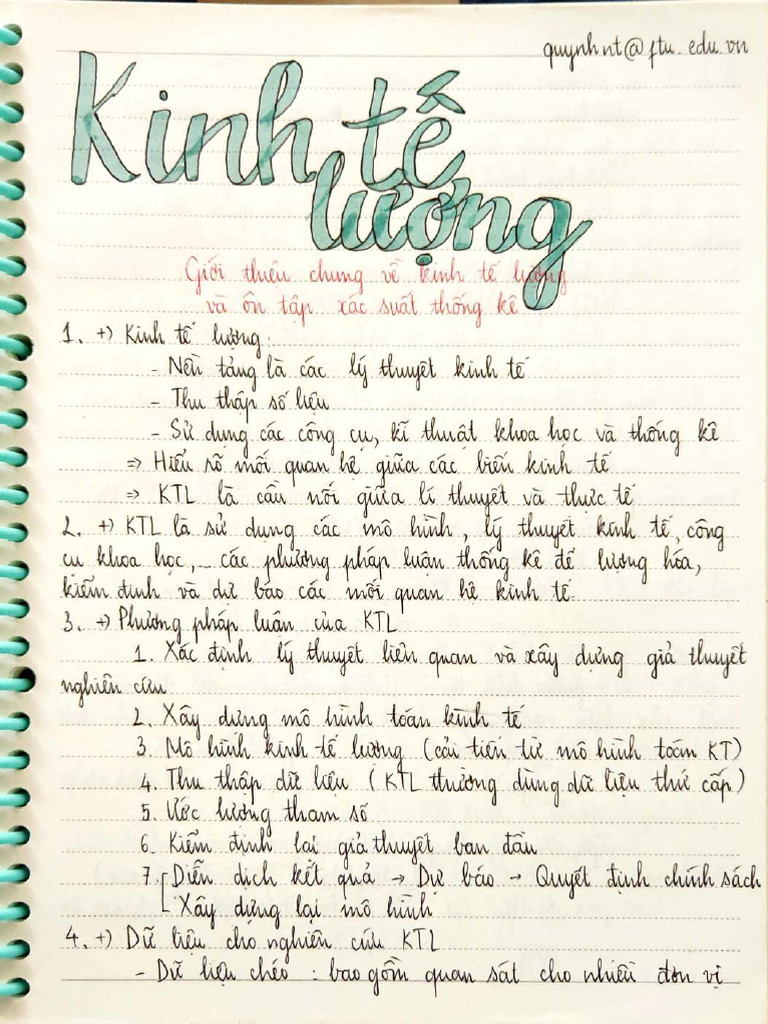 quynhnt@ftu.edu.vn
Kinh tế
lượng
Giới thiệu chung về kinh tế lượng
và ôn tập xác suất thống kê
1. +) Kinh tế lượng:
- Nền tảng là các lý thuyết kinh tế
- Thu thập số liệu
- Sử dụng các công cụ, kĩ thuật khoa học và thống kê
⇒ Hiểu số mối quan hệ giữa các biến kinh tế
⇒ KTL là cầu nối giữa lí thuyết và thực tế
2. +) KTL là sử dụng các mô hình, lý thuyết kinh tế, công
cụ khoa học,... các phương pháp luận thống kê để lượng hóa,
kiểm định và dự báo các mối quan hệ kinh tế.
3. +) Phương pháp luận của KTL
1. Xác định lý thuyết liên quan và xây dựng giả thuyết
nghiên cứu
2. Xây dựng mô hình toán kinh tế
3. Mô hình kinh tế lượng (cải tiến từ mô hình toán KT)
4. Thu thập dữ liệu (KTL thường dùng dữ liệu thứ cấp)
5. Ước lượng tham số
6. Kiểm định lại giả thuyết ban đầu
7. Diễn dịch kết quả → Dự báo → Quyết định chính sách
Xây dựng lại mô hình
4. +) Dữ liệu cho nghiên cứu KTL
- Dữ liệu chéo : bao gồm quan sát cho nhiều đơn vị